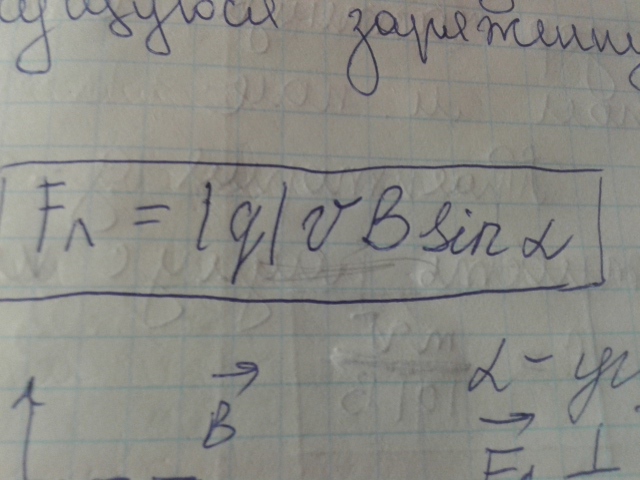 заряженну
Fл = |q| v B sin α
B⃗
α – уг
F⃗л ⊥